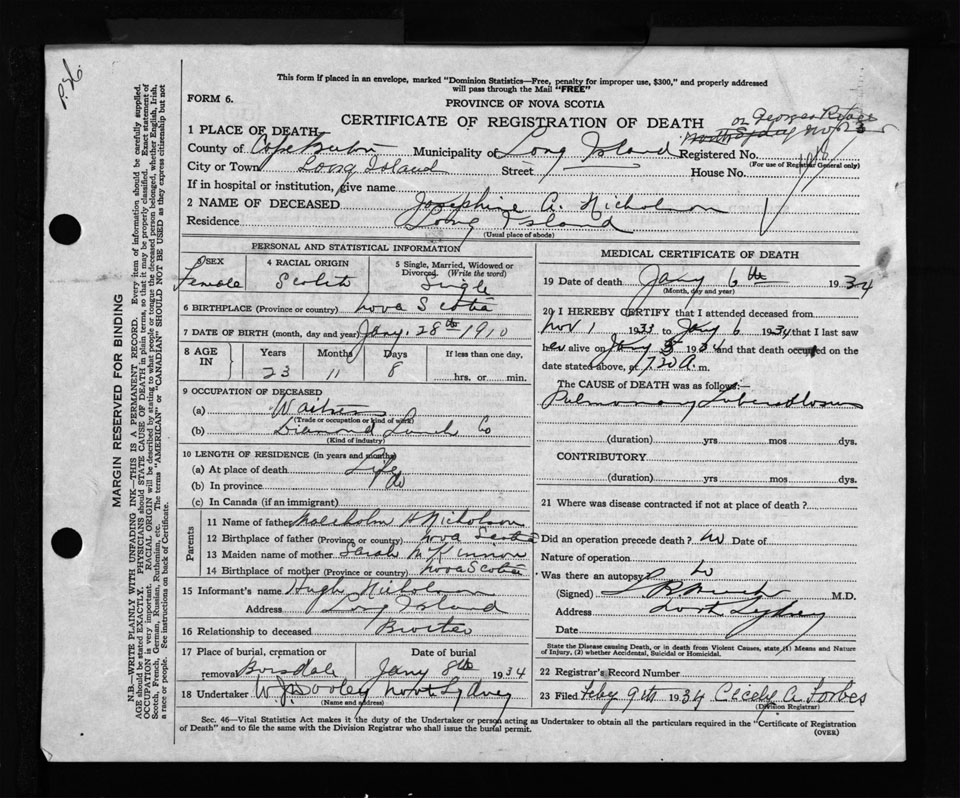 P.H.
This form if placed in an envelope, marked "Dominion Statistics—Free, penalty for improper use, $300," and properly addressed
will pass through the Mail "FREE"
FORM 6.
PROVINCE OF NOVA SCOTIA
CERTIFICATE OF REGISTRATION OF DEATH
on Georges River
North Sydney
1 PLACE OF DEATH
County of Cape Breton Municipality of Long Island Registered No.
(For use of Registrar General only)
City or Town Long Island Street House No.
If in hospital or institution, give name
2 NAME OF DECEASED Josephine A. Nicholson
Residence Long Island
(Usual place of abode)
PERSONAL AND STATISTICAL INFORMATION
3 SEX 4 RACIAL ORIGIN 5 Single, Married, Widowed or Divorced (Write the word)
Female Scotch Single
6 BIRTHPLACE (Province or country) Nova Scotia
7 DATE OF BIRTH (month, day and year) Jany. 28th 1910
8 AGE IN Years Months Days If less than one day,
23 11 8 hrs. or min.
9 OCCUPATION OF DECEASED
(a) Waitress
(Trade or occupation or kind of work)
(b) Diamond Lunch Co
(Kind of industry)
10 LENGTH OF RESIDENCE (in years and months)
(a) At place of death Life
(b) In province do
(c) In Canada (if an immigrant)
Parents
11 Name of father Malcholm A Nicholson
12 Birthplace of father (Province or country) Nova Scotia
13 Maiden name of mother Sarah McKinnon
14 Birthplace of mother (Province or country) Nova Scotia
15 Informant's name Hugh Nicholson
Address Long Island
16 Relationship to deceased Brother
17 Place of burial, cremation or removal Date of burial
Boisdale Jany 8th 1934
18 Undertaker W. J. Dooley North Sydney
(Name and address)
MEDICAL CERTIFICATE OF DEATH
19 Date of death Jany 6th 1934
(Month, day and year)
20 I HEREBY CERTIFY that I attended deceased from
Nov 1 1933 to Jany 6 1934 that I last saw
her alive on Jany 5 1934 and that death occurred on the
date stated above, at 7.20 A. m.
The CAUSE OF DEATH was as follows:—
Pulmonary Tuberculosis
(duration) yrs mos dys.
CONTRIBUTORY
(duration) yrs mos dys.
21 Where was disease contracted if not at place of death?
Did an operation precede death? No Date of
Nature of operation
Was there an autopsy No
(Signed) M.D.
Address North Sydney
Date
State the Disease causing Death, or in death from Violent Causes, state (1) Means and Nature
of Injury, (2) whether Accidental, Suicidal or Homicidal.
22 Registrar's Record Number
23 Filed Feby 9th 1934 Cicely A. Forbes
(Division Registrar)
Sec. 46—Vital Statistics Act makes it the duty of the Undertaker or person acting as Undertaker to obtain all the particulars required in the "Certificate of Registration
of Death" and to file the same with the Division Registrar who shall issue the burial permit.
(OVER)
MARGIN RESERVED FOR BINDING
N.B.—WRITE PLAINLY WITH UNFADING INK—THIS IS A PERMANENT RECORD. Every item of information should be carefully supplied.
AGE should be stated EXACTLY. PHYSICIANS should STATE CAUSE OF DEATH in plain terms, so that it may be properly classified. Exact statement of
OCCUPATION is very important. RACIAL ORIGIN will be described by stating to what people or tongue the deceased person belonged, whether English, Irish,
Scotch, French, German, Russian, Ruthenian, etc. The terms "AMERICAN" or "CANADIAN" SHOULD NOT BE USED as they express citizenship but not
a race or people. See instructions on back of Certificate.